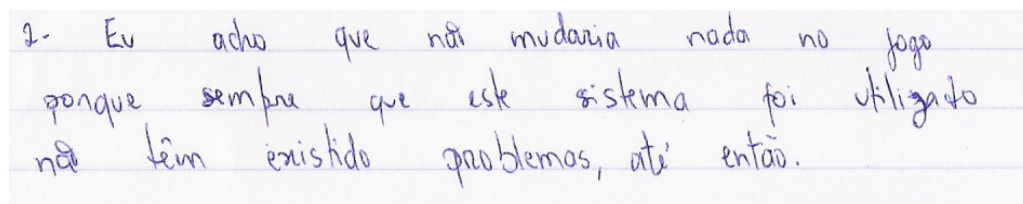 2- Eu acho que não mudaria nada no jogo
porque sempre que este sistema foi utilizado
não têm existido problemas, até então.